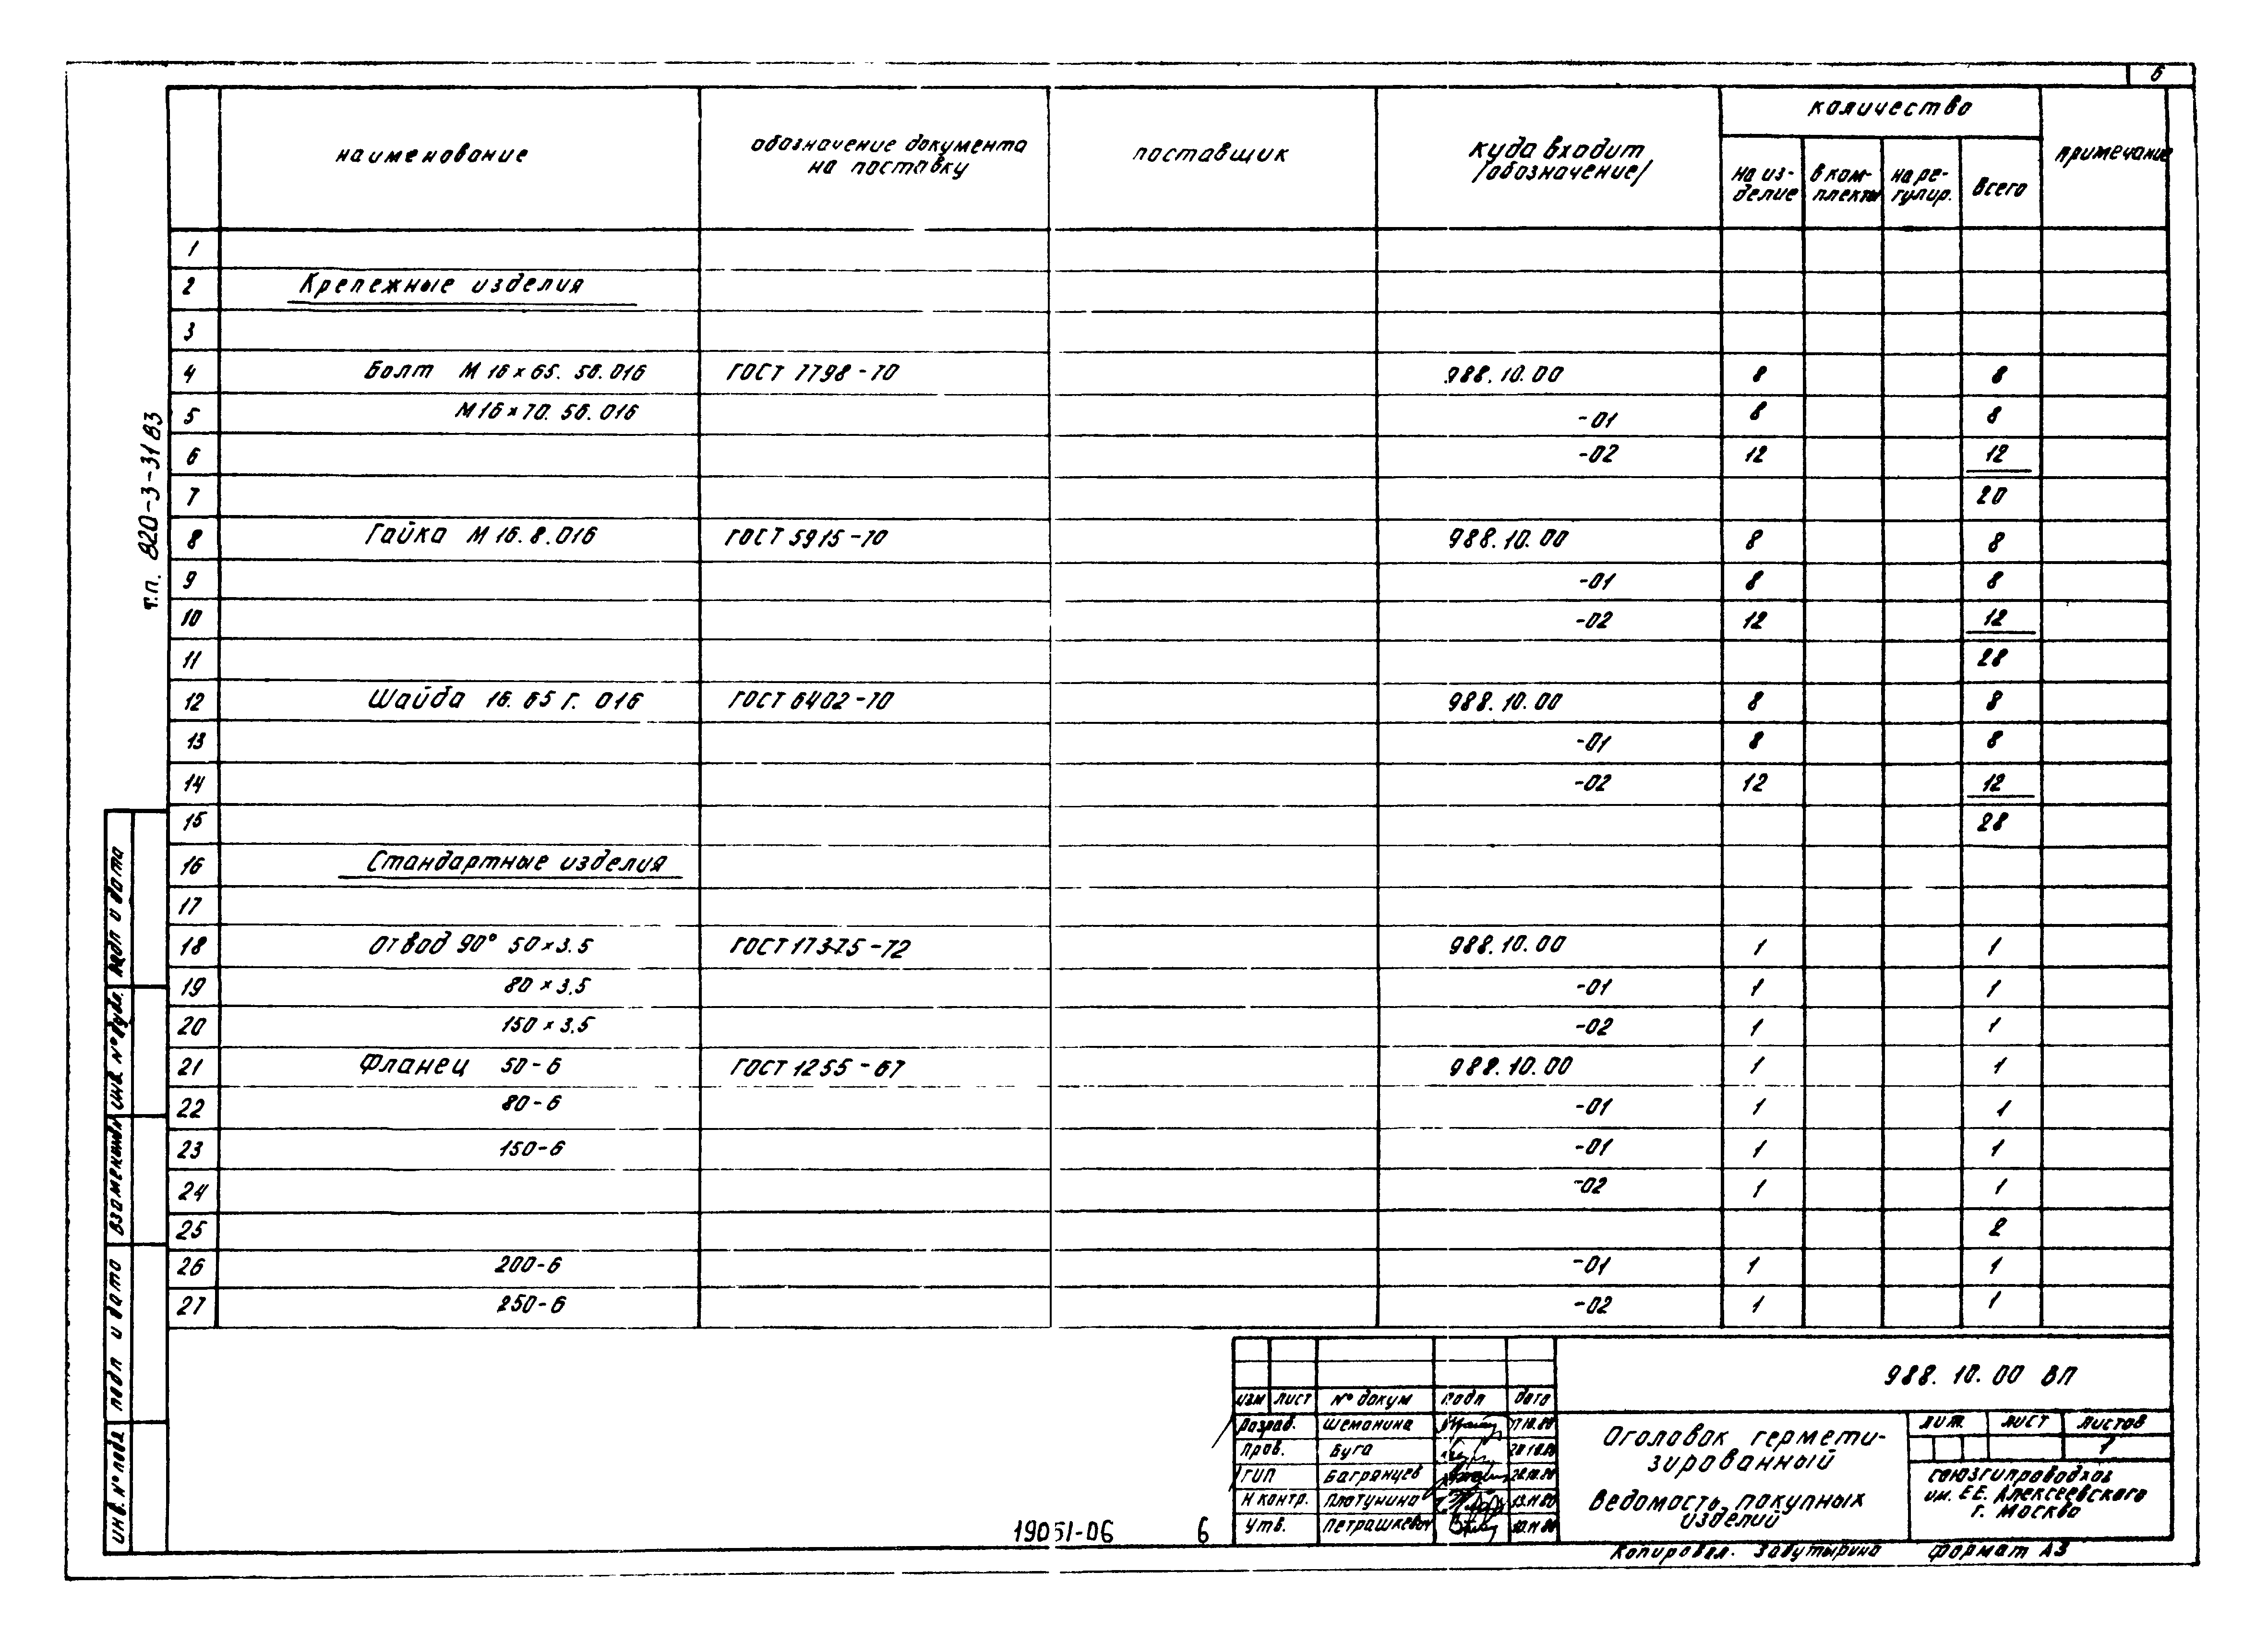 6
наименование
обозначение документа на поставку
поставщик
куда входит /обозначение/
количество
на из-делие
в ком-плекты
на ре-гулир.
всего
примечание
1
2 Крепежные изделия
3
4 Болт М16×65.56.016 ГОСТ 7798-70 988.10.00 8 8
5 М16×70.56.016 -01 8 8
6 -02 12 12
7 20
8 Гайка М16.8.016 ГОСТ 5915-70 988.10.00 8 8
9 -01 8 8
10 -02 12 12
11 28
12 Шайба 16.65Г.016 ГОСТ 6402-70 988.10.00 8 8
13 -01 8 8
14 -02 12 12
15 28
16 Стандартные изделия
17
18 Отвод 90° 50×3.5 ГОСТ 17375-72 988.10.00 1 1
19 80×3.5 -01 1 1
20 150×3.5 -02 1 1
21 Фланец 50-6 ГОСТ 1255-67 988.10.00 1 1
22 80-6 -01 1 1
23 150-6 -01 1 1
24 -02 1 1
25 2
26 200-6 -01 1 1
27 250-6 -02 1 1
т.п. 820-3-31 83
подп и дата
инв. № дубл.
взамен инв №
подп и дата
инв. № подл
изм лист № докум подп дата
Разраб. Шеманина 17.10.80
Пров. Буга
ГИП Багрянцев
Н контр. Плотунина 13.11.80
Утв. Петрашкевич
988.10.00 ВП
Оголовок гермети-
зированный
Ведомость покупных
изделий
лит. лист листов
1
Союзгипроводхоз
им. Е.Е. Алексеевского
г. Москва
19051-06 6
Копировал. Забутырина Формат А3